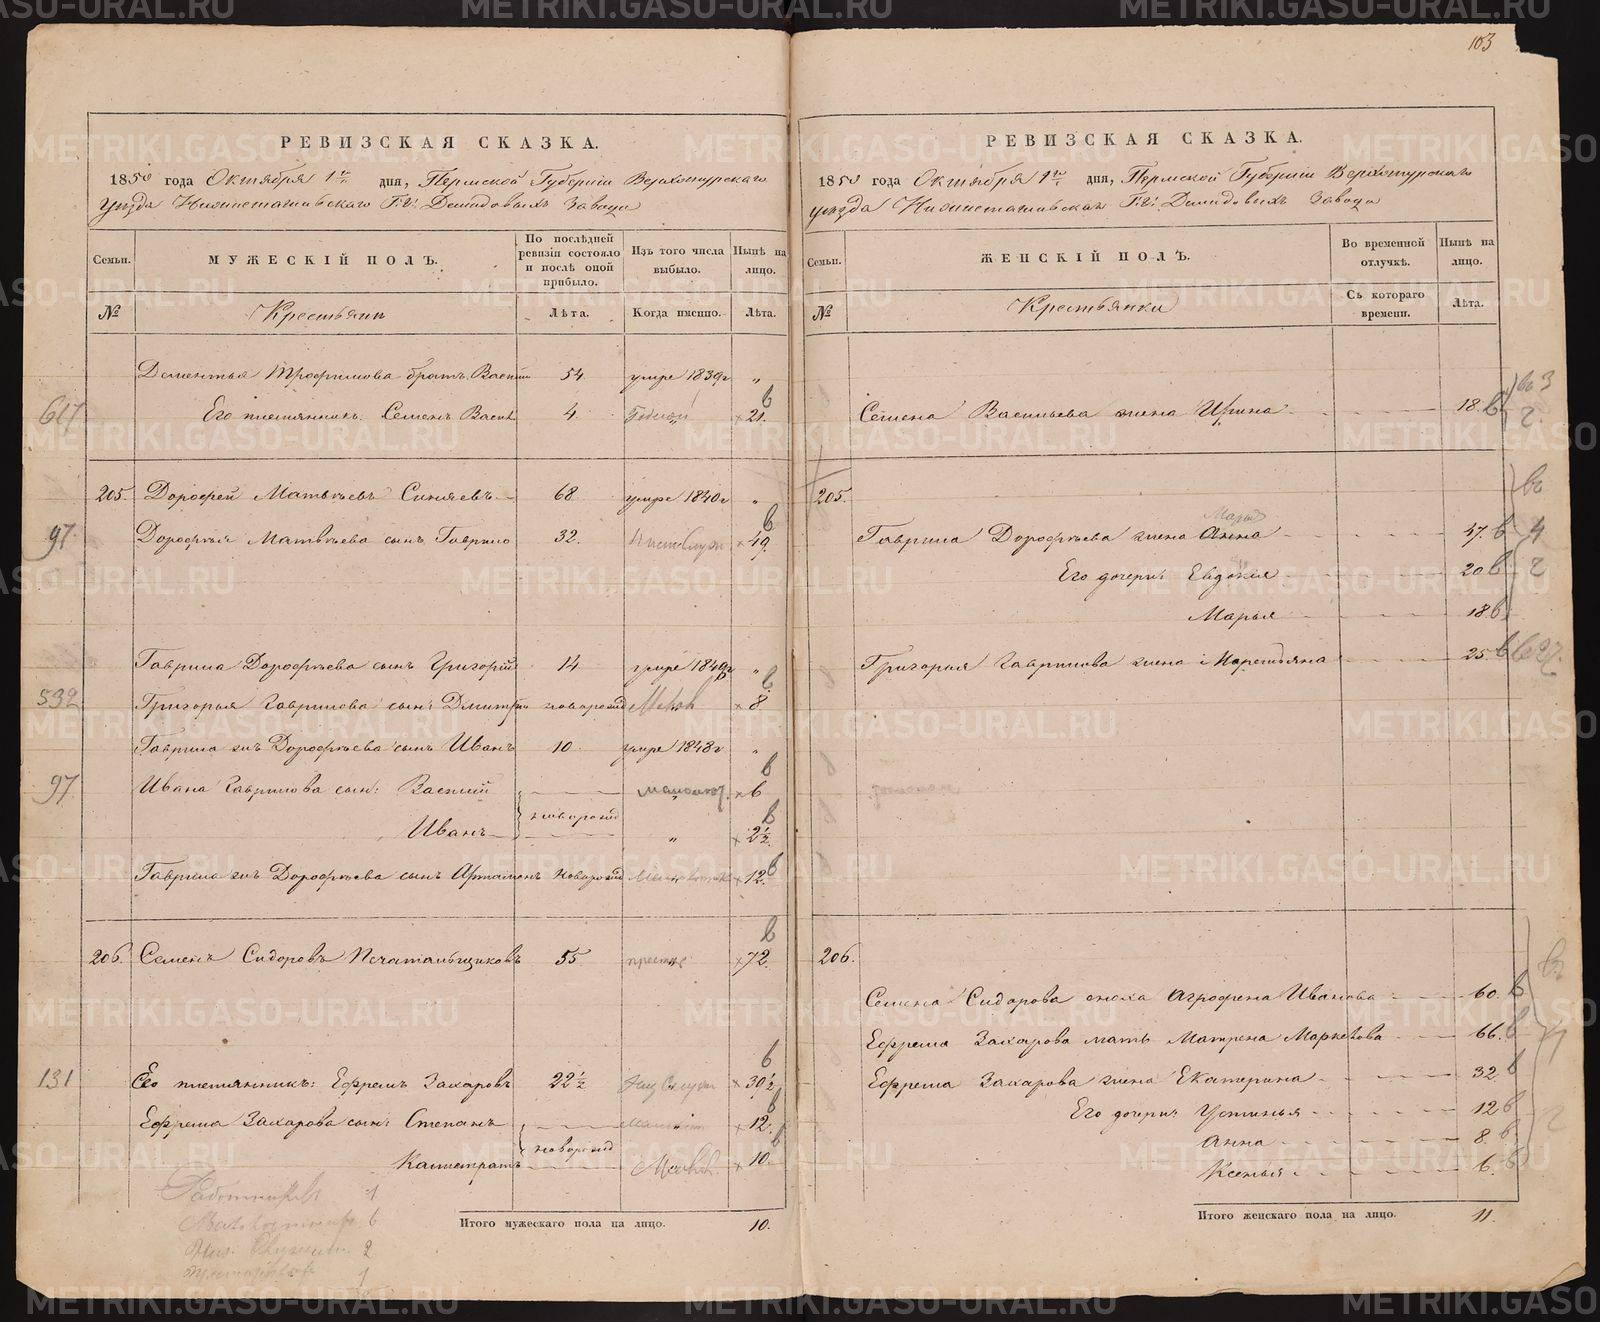 103
РЕВИЗСКАЯ СКАЗКА.
1850 года Октября 1го дня, Пермской Губерніи Верхотурскаго
уѣзда Нижнетагильскаго Г.г. Демидовыхъ Завода
Семьи.
МУЖЕСКІЙ ПОЛЪ.
По послѣдней ревизіи состояло и послѣ оной прибыло.
Изъ того числа выбыло.
Нынѣ на лицо.
№
Крестьянъ
Лѣта.
Когда именно.
Лѣта.
Дементья Трофимова братъ Василій 54 умре 1839г "
617 Его племянникъ: Семенъ Василь 4. 21.
205. Дорофей Матвѣевъ Синяевъ 68 умре 1840г "
97. Дорофѣя Матвѣева сынъ Гаврило 32. 49.
Гаврила Дорофѣева сынъ Григорій 14 умре 1849г "
532 Григорья Гаврилова сынъ Дмитрій новорожд 8
Гаврила Дорофѣева сынъ Иванъ 10. умре 1848г "
97. Ивана Гаврилова сын: Василій 6
новорожд
Иванъ " 2½
Гаврила Дорофѣева сынъ Артамонъ новорожд 12.
206. Семенъ Сидоровъ Печатальщиковъ 55 72.
131 Его племянникъ: Ефремъ Захаровъ 22½ 30½
Ефрема Захарова сын: Степанъ 12.
новорожд
Калистратъ 10.
Итого мужескаго пола на лицо. 10.
РЕВИЗСКАЯ СКАЗКА.
1850 года Октября 1го дня, Пермской Губерніи Верхотурскаго
уѣзда Нижнетагильскаго Г.г. Демидовыхъ Завода
Семьи.
ЖЕНСКІЙ ПОЛЪ.
Во временной отлучкѣ.
Нынѣ на лицо.
№
Крестьянки
Съ котораго времени.
Лѣта.
Семена Васильева жена Ирина 18.
205.
Марья
Гаврила Дорофѣева жена Анна 47.
Его дочери: Евдокия 20
Марья 18
Григорья Гаврилова жена 25.
206.
Семена Сидорова сноха Агрофена Иванова 60.
Ефрема Захарова мать Матрена 66.
Ефрема Захарова жена Екатерина 32
Его дочери: Устинья 12
Анна 8.
Ксенья 6.
Итого женскаго пола на лицо. 11.
METRIKI.GASO-URAL.RU